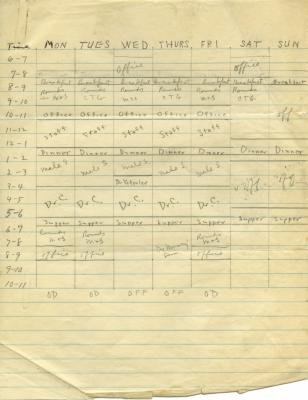 Time MON TUES WED. THURS. FRI SAT SUN
6-7
7-8 Office office
8-9 Breakfast Breakfast Breakfast Breakfast Breakfast Breakfast Breakfast
Rounds Rounds Rounds Rounds Rounds Rounds
9-10 OTG M+S OTG M+S OTG
10-11 OFFICE OFFICE OFFICE OFFICE OFFICE off
11-12 Staff Staff Staff Staff Staff
12-1
1-2 Dinner Dinner Dinner Dinner Dinner Dinner Dinner
2-3 Male S Male S Male S Male S Male S
3-4 off off
4-5 Dr. C. Dr. C. Dr. C. Dr. C. Dr. C.
5-6
6-7 Supper Supper Supper Supper Supper Supper Supper
7-8 Rounds M+S Rounds M+S Rounds M+S
8-9 office office office
9-10
10-11
OD OD OFF OFF OD